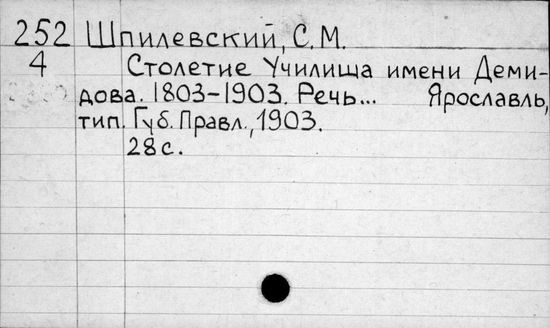 252 Шпилевский, С.М.
4 Столетие Училища имени Деми-
дова. 1803-1903. Речь... Ярославль,
тип. Губ. Правл., 1903.
28 с.